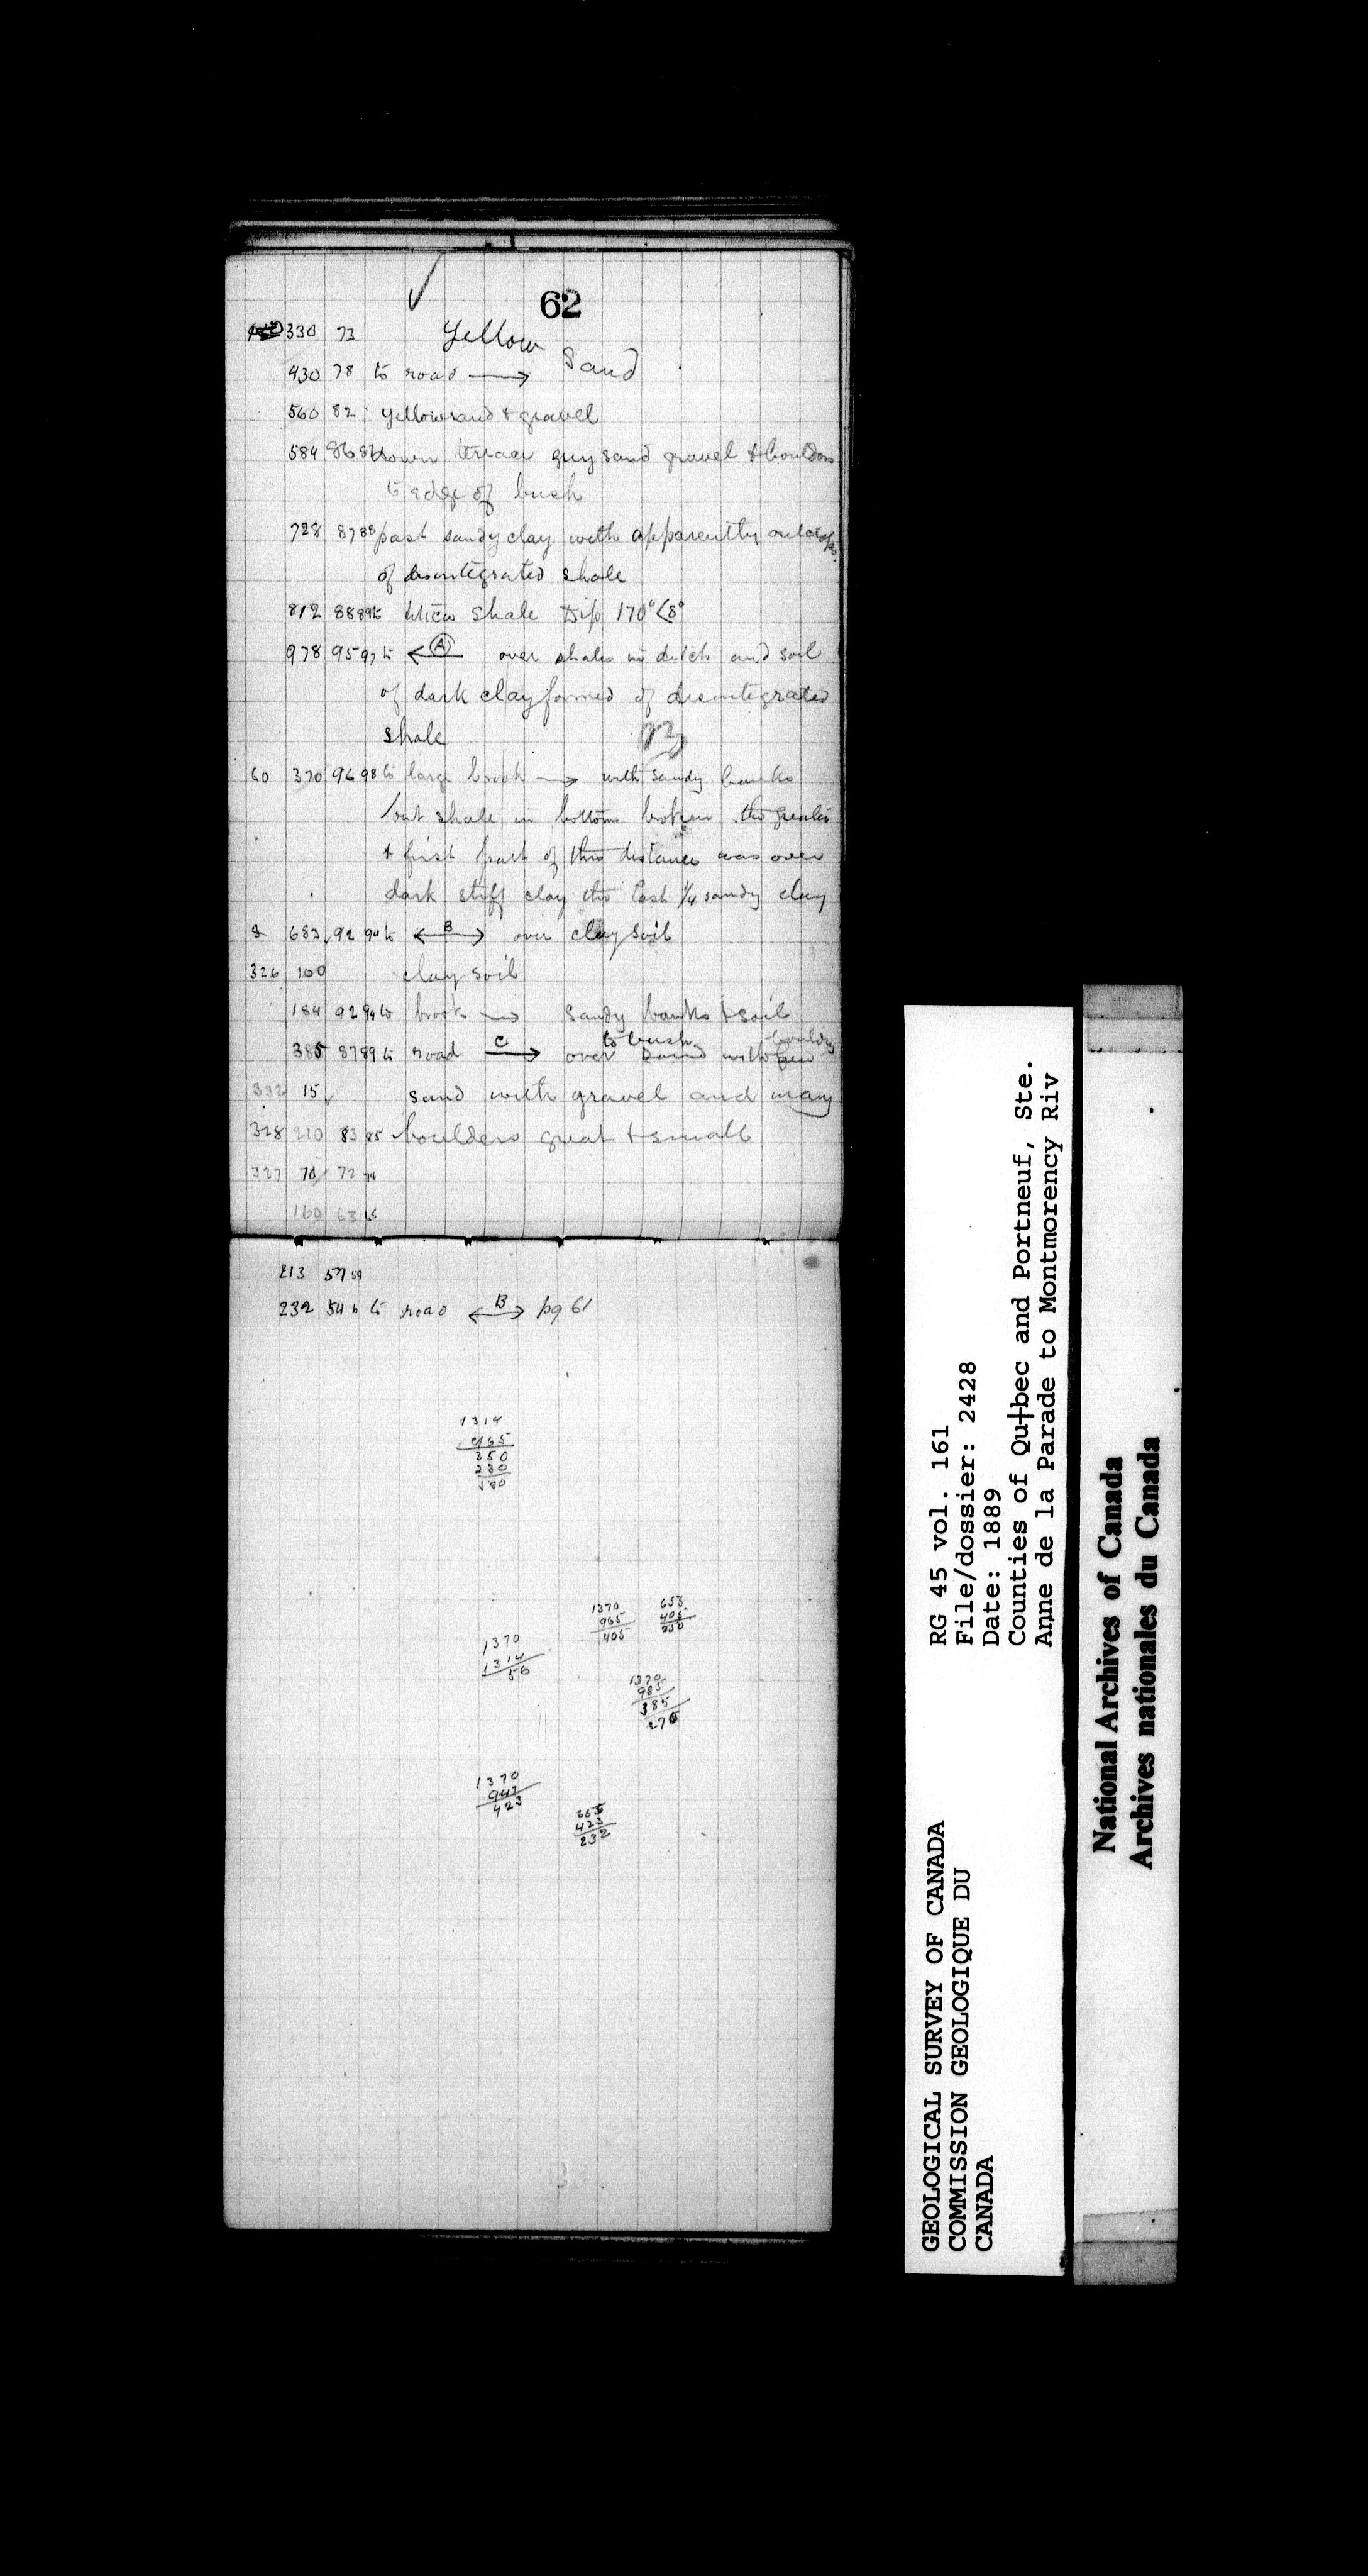 62
330 73 Yellow Sand
430 78 to road →
560 82 Yellow sand & gravel
584 86 down terrace grey sand gravel & boulders
to edge of bush
728 87 88 past sandy clay with apparently outcrops
of disintegrated shale
812 88 89 to Utica shale Dip 170° <8°
978 95 97 to ← A over shales in ditch and soil
of dark clay formed of disintegrated
shale
60 370 96 98 to large brook → with sandy banks
but shale in bottom broken the greater
& first part of this distance was over
dark stiff clay the last 1/4 sandy clay
683 92 94 to ← B → over clay soil
326 100 clay soil
184 92 94 to brook → sandy banks & soil
to bush bouldery
385 87 89 to road C → over sand with
332 15 sand with gravel and many
328 210 83 85 boulders great & small
327 70 72 74
160 63 65
213 57 59
232 54 to road ← B → pg 61
1314
965
350
230
580
1370
965
405
655
405
250
1370
1314
56
1370
985
385
270
1370
947
423
655
423
232
RG 45 vol. 161
File/dossier: 2428
Date: 1889
Counties of Qu┼bec and Portneuf, Ste.
Anne de la Parade to Montmorency Riv
GEOLOGICAL SURVEY OF CANADA
COMMISSION GEOLOGIQUE DU
CANADA
National Archives of Canada
Archives nationales du Canada